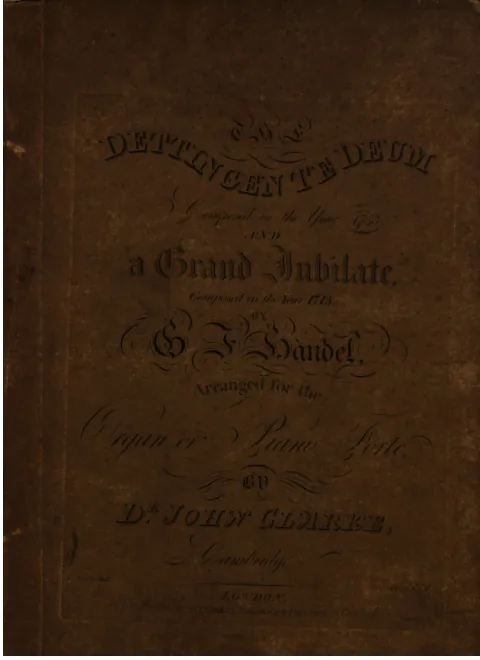 THE
DETTINGEN TE DEUM
Composed in the Year
AND
a Grand Jubilate,
Composed in the Year
BY
G. F. Handel,
Arranged for the
Organ or Piano Forte,
BY
DR. JOHN CLARKE,
Cambridge
LONDON,